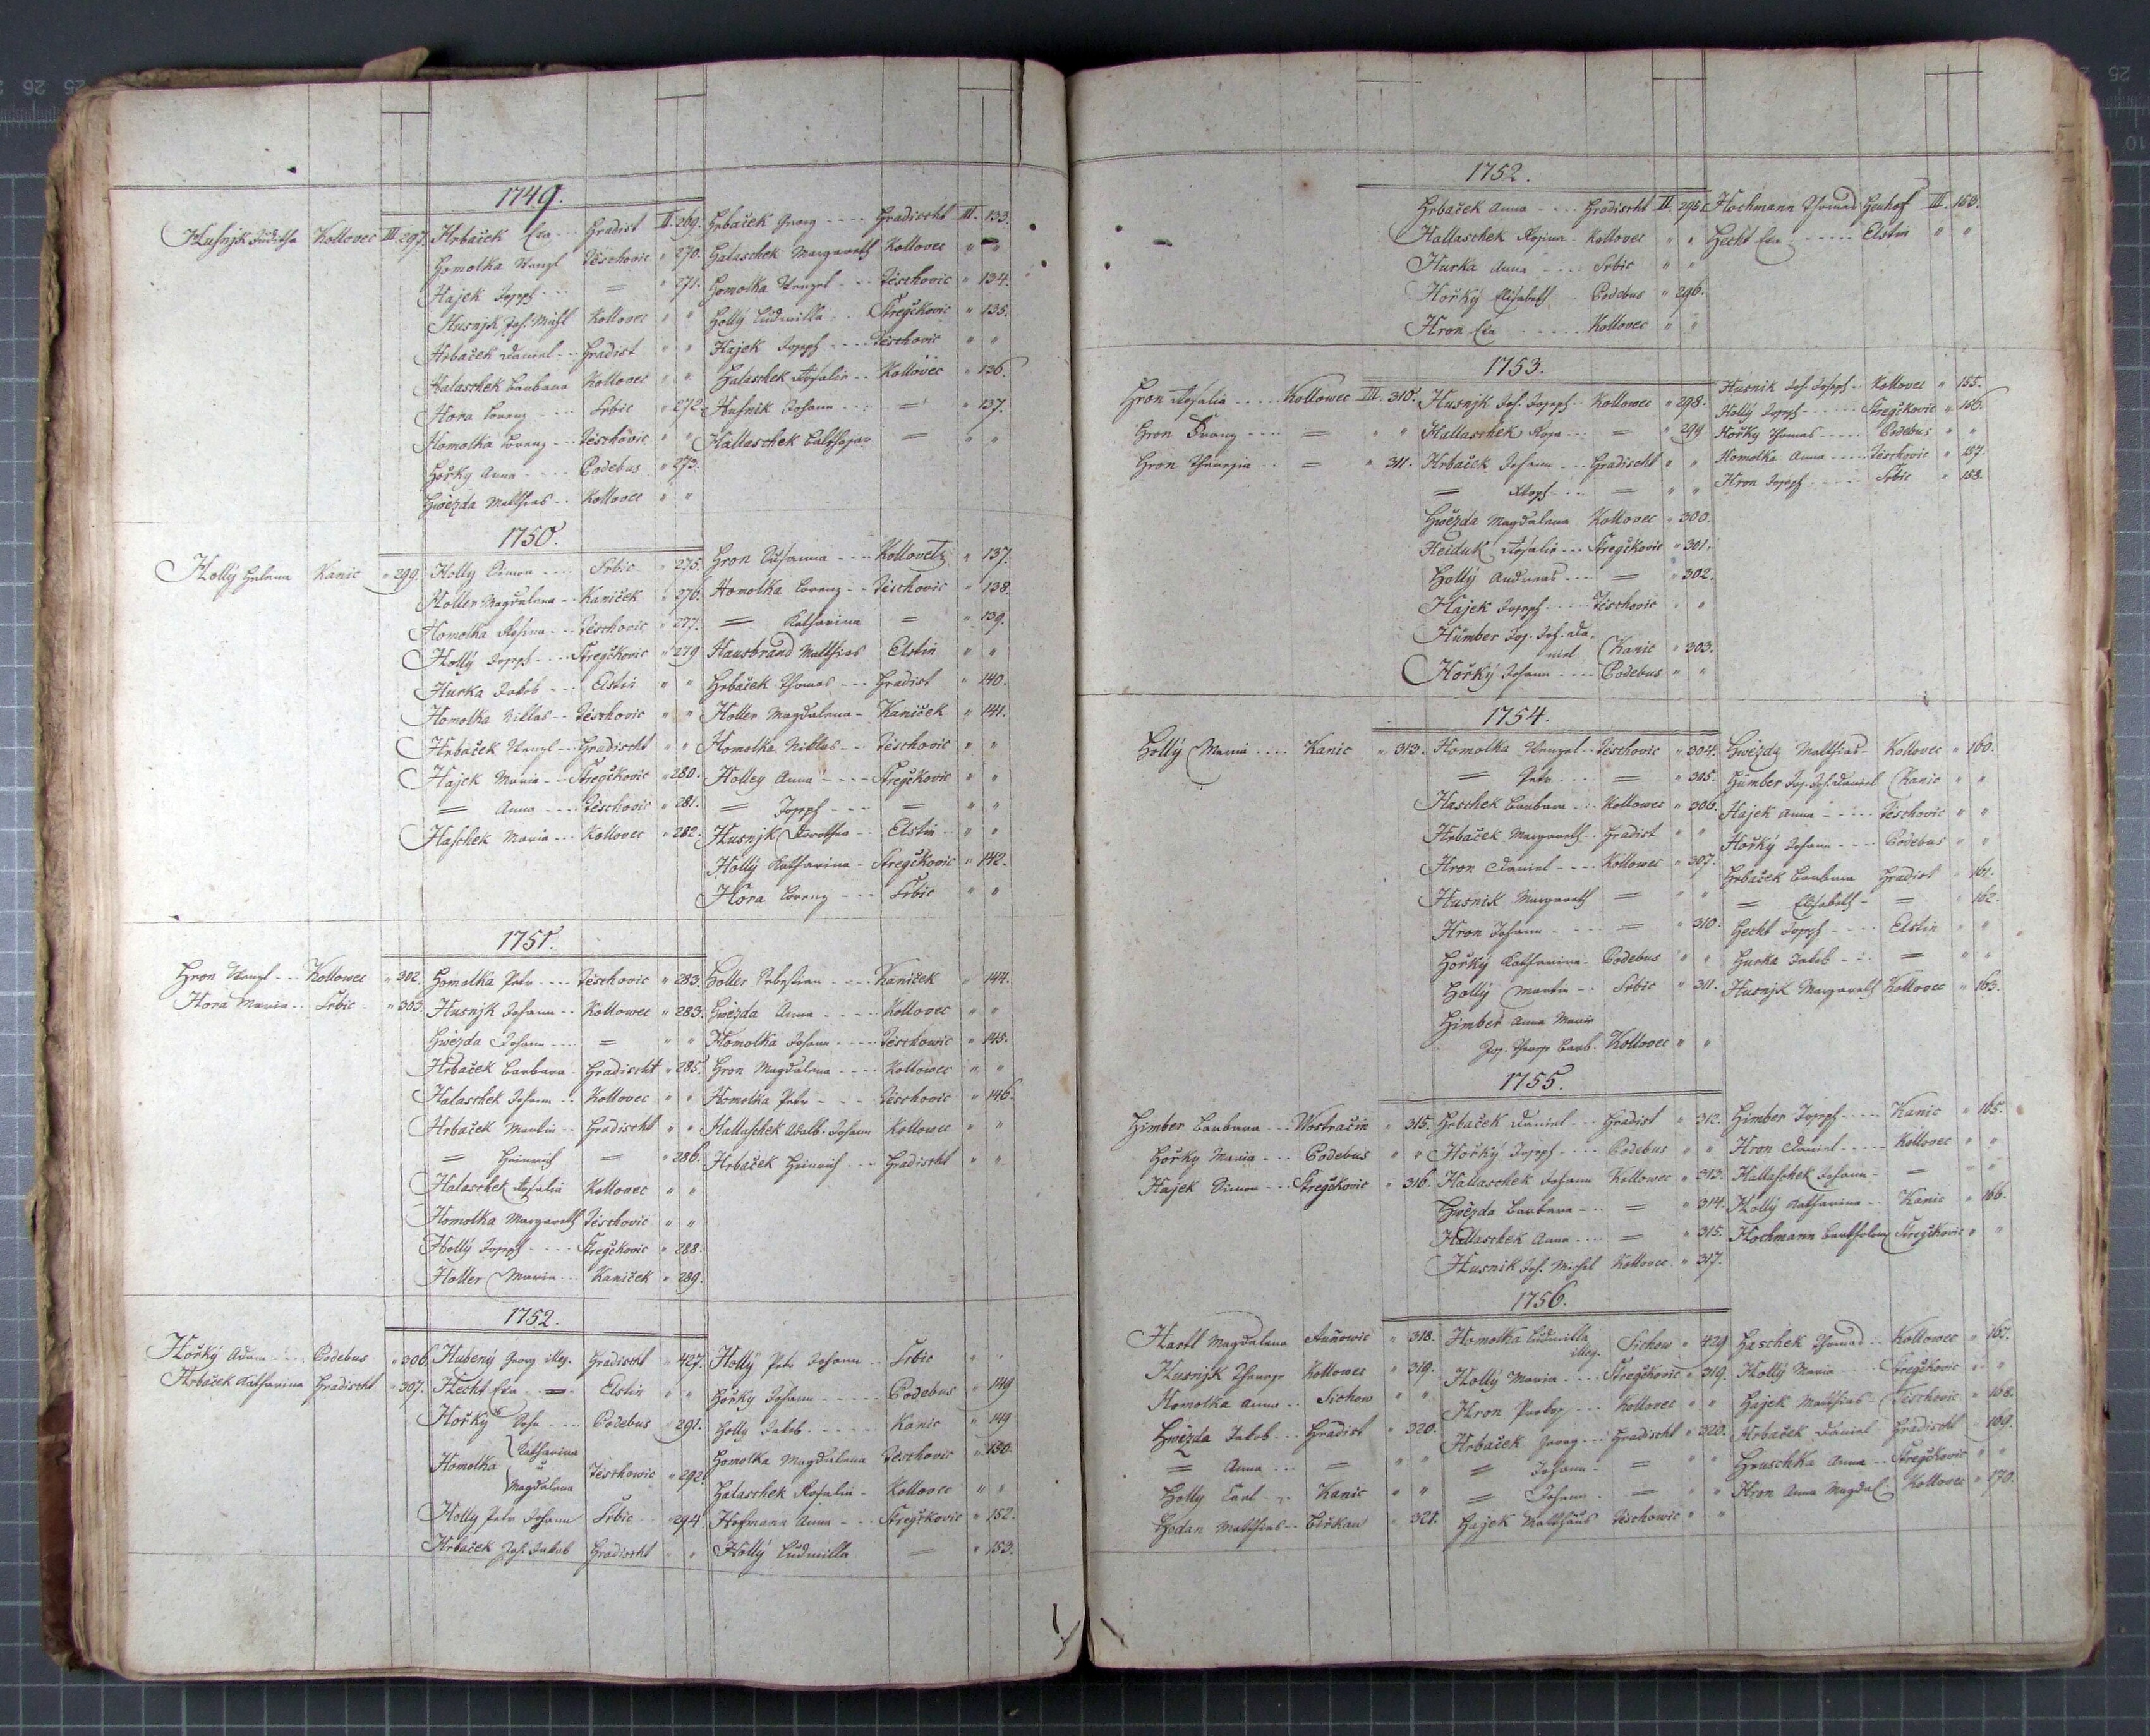 1749.
Husnjk Juditha Kollovec III 297. Hrbaček Eva Gradist II 269. Hrbaček Georg Gradischt III 133.
Homolka Wenzl Teschovic " 270. Halaschek Margareth Kollovec " "
Hajek Joseph = " 271. Homolka Wenzel Teschovic " 134.
Husnjk Joh. Michl Kollovec " " Hollý Ludmilla Stregčkovic " 135.
Hrbaček Daniel Gradist " " Hajek Joseph Teschovic " "
Halaschek Barbara Kollovec " " Halaschek Rosalia Kollovec " 136.
Hora Lorenz Srbic " 272 Husnik Johann = " 137.
Homolka Lorenz Teschovic " " Hallaschek Balthasar = " "
Hořky Anna Podebus " 273.
Hwězda Matthias Kollovec " "
1750.
Hollý Helena Kanic " 299. Holly Simon Srbic " 275. Hron Susanna Kollovetz " 137.
Holler Magdalena Kaniček " 276. Homolka Lorenz Teschovic " 138.
Homolka Rosina Teschovic " 277. = Katharina = " 139.
Hollý Joseph Stregčkovic " 279 Hausbrand Matthias Elstin " "
Hurka Jakob Elstin " " Hrbaček Thomas Gradist " 140.
Homolka Niklas Teschovic " " Holler Magdalena Kaniček " 141.
Hrbaček Wenzl Gradischt " " Homolka Niklas Teschovic " "
Hajek Maria Stregčkovic " 280. Holley Anna Stregčkovic " "
= Anna Teschovic " 281. = Joseph = " "
Haschek Maria Kollovec " 282. Husnjk Dorothea Elstin " "
Hollý Katharina Stregčkovic " 142.
Hora Lorenz Srbic " "
1751.
Hron Wenzl Kollowec " 302. Homolka Petr Teschovic " 283. Holler Sebastian Kaniček " 144.
Hora Maria Srbic " 303. Husnjk Johann Kollowec " 283. Hwězda Anna Kollovec " "
Hwězda Johann = " " Homolka Johann Teschowic " 145.
Hrbaček Barbara Gradischt " 285. Hron Magdalena Kollowec " "
Halaschek Johann Kollovec " " Homolka Petr Teschovic " 146.
Hrbaček Martin Gradischt " " Hallaschek Adalb. Johann Kollowec " "
= Heinrich = " 286. Hrbaček Heinrich Gradischt " "
Halaschek Rosalia Kollovec " "
Homolka Margareth Teschovic " "
Hollý Joseph Stregčkovic " 288.
Holler Maria Kaniček " 289.
1752.
Hořký Adam Podebus " 306 Hubený Georg illeg. Gradischt " 427. Hollý Petr Johann Srbic " "
Hrbaček Katharina Gradischt " 307. Hecht Eva = Elstin " " Hořky Johann Podebus " 149
Hořký Podebus " 291. Holly Jakob Kanic " 149
Homolka Katharina u Magdalena Teschowic " 292. Homolka Magdalena Teschovic " 150.
Halaschek Rosalia Kollovec " "
Holly Petr Johann Srbic " 294. Hofmann Anna Stregčkovic " 152.
Hrbaček Joh. Jakob Gradischt " " Hollý Ludmilla = " 153.
1752.
Hrbaček Anna Gradischt II 295. Hochmann Thomas Heuhof III 153.
Hallaschek Rosina Kollovec " " Hecht Eva Elstin " "
Hurka Anna Srbic " "
Hořký Elisabeth Podebus " 296.
Hron Eva Kollovec " "
1753.
Hron Rosalia Kollowec III 310. Husnjk Joh. Joseph Kollowec " 298. Husnik Joh. Joseph Kollovec " 155.
Hron Franz = " " Hallaschek Rosa = " 299 Hollý Joseph Stregčkovic " 156.
Hořký Thomas Podebus " "
Hron Theresia = " 311. Hrbaček Johann Gradischt " " Homolka Anna Teschovic " 157.
= Joseph = " " Hron Joseph Srbic " 158.
Hwězda Magdalena Kollovec " 300.
Heiduk Rosalia Stregčkovic " 301.
Hollý Andreas = " 302.
Hajek Joseph Teschovic " "
Hümber Jos. Joh. Daniel Kanic " 303.
Hořký Johann Podebus " "
1754.
Hollý Maria Kanic " 313. Homolka Wenzel Teschovic " 304. Hwězda Matthias Kollovec " 160.
= Petr = " 305. Hümber Jos. Joh. Daniel Kanic " "
Haschek Barbara Kollowec " 306. Hajek Anna Teschovic " "
Hrbaček Margareth Gradist " " Hořký Johann Podebus " "
Hron Daniel Kollowec " 307. Hrbaček Barbara Gradist " 161.
Husnik Margareth = " " = Elisabeth = " 162.
Hron Johann = " 310. Hecht Joseph Elstin " "
Hořký Katharina Podebus " " Hurka Jakob = " "
Hollý Martin Srbic " 311. Husnjk Margareth Kollovec " 163.
Himber Anna Maria
Jos. Theres Barb. Kollovec " "
1755.
Himber Barbara Wostračin " 315. Hrbaček Daniel Gradist " 312. Himber Joseph Kanic " 165.
Hořky Maria Podebus " " Hořký Joseph Podebus " " Hron Daniel Kollovec " "
Hajek Simon Stregčkovic " 316. Hallaschek Johann Kollowec " 313. Hallaschek Johann = " "
Hwězda Barbara = " 314. Hollý Katharina Kanic " 166.
Hallaschek Anna = " 315. Hochmann Bartholom Stregčkovic " "
Husnik Joh. Michl Kollovec " 317.
1756.
Hartl Magdalena Auňowic " 318. Homolka Ludmilla illeg. Sichow " 429 Haschek Thomas Kollowec " 167.
Husnjk Theres Kollowec " 319. Hollý Maria Stregčkovic " 319. Hollý Maria Stregčkovic " "
Homolka Anna Sichow " " Hron Prokop Kollovec " " Hajek Matthias Teschovic " 168.
Hwězda Jakob Gradist " 320. Hrbaček Georg Gradischt " 320. Hrbaček Daniel Gradischt " 169.
= Anna = " " = Johann = " " Hruschka Anna Stregčkovic " "
Holly Carl Kanic " " = Johann = " " Hron Anna Magdal. Kollovec " 170.
Hodan Matthias Birkau " 321. Hajek Matthäus Teschowic " "